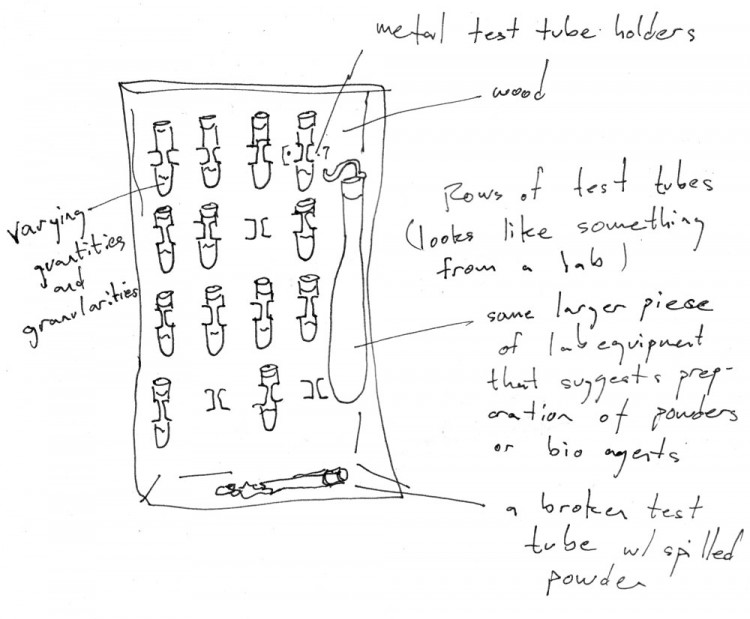 metal test tube holders
wood
Rows of test tubes
(looks like something
from a lab)
varying
quantities
and
granularities
some larger piese
of lab equipment
that suggests prep-
aration of powders
or bio agents
a broken test
tube w/ spilled
powder